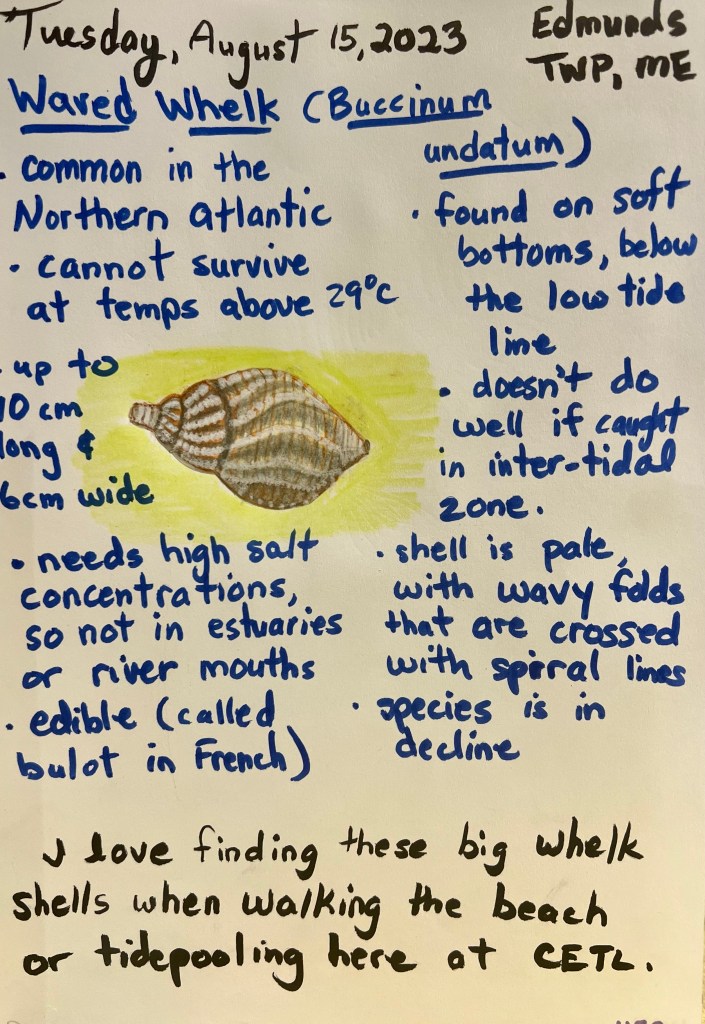 Tuesday, August 15, 2023
Edmunds
TWP, ME
Waved Whelk (Buccinum
undatum)
• common in the
Northern atlantic
• cannot survive
at temps above 29°C
• up to
10 cm
long &
6cm wide
• needs high salt
concentrations,
so not in estuaries
or river mouths
• edible (called
bulot in French)
• found on soft
bottoms, below
the low tide
line
• doesn't do
well if caught
in inter-tidal
zone.
• shell is pale,
with wavy folds
that are crossed
with spiral lines
• species is in
decline
I love finding these big whelk
shells when walking the beach
or tidepooling here at CETL.